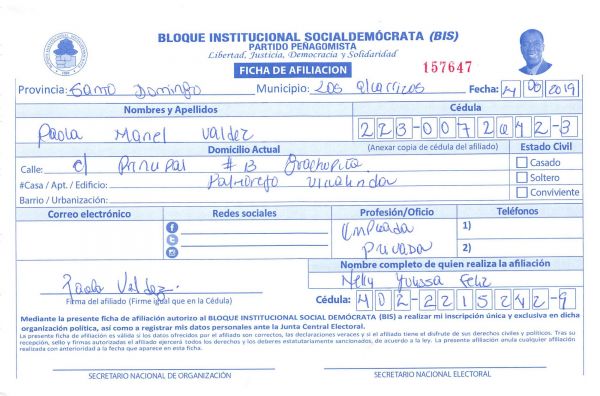 BLOQUE INSTITUCIONAL SOCIALDEMÓCRATA (BIS)
PARTIDO PEÑAGOMISTA
Libertad, Justicia, Democracia y Solidaridad
FICHA DE AFILIACION
157647
Provincia: Santo Domingo Municipio: Los Alcarrizos Fecha: 2019
Nombres y Apellidos Cédula
Paola Mariel Valdez 223-0072642-3
Domicilio Actual (Anexar copia de cédula del afiliado) Estado Civil
Calle: c/ Principal #13 Casado
#Casa / Apt. / Edificio: Villalinda Soltero
Barrio / Urbanización: Conviviente
Correo electrónico Redes sociales Profesión/Oficio Teléfonos
Empleada 1)
Privada 2)
Nombre completo de quien realiza la afiliación
Paola Valdez Nelly Yulissa Feliz
Firma del afiliado (Firme igual que en la Cédula) Cédula: 402-2215242-9
Mediante la presente ficha de afiliación autorizo al BLOQUE INSTITUCIONAL SOCIAL DEMÓCRATA (BIS) a realizar mi inscripción única y exclusiva en dicha
organización política, así como a registrar mis datos personales ante la Junta Central Electoral.
La presente ficha de afiliación es válida y los datos ofrecidos por el afiliado es correctos, las declaraciones veraces y si el afiliado tiene el disfrute de sus derechos civiles y políticos. Tras su
recepción, sello y firmas autorizadas el afiliado ejercerá todos los derechos y los deberes estatutariamente sancionados, de acuerdo a la ley. La presente afiliación anula cualquier afiliación
realizada con anterioridad a la fecha que aparece en esta ficha.
SECRETARIO NACIONAL DE ORGANIZACIÓN SECRETARIO NACIONAL ELECTORAL